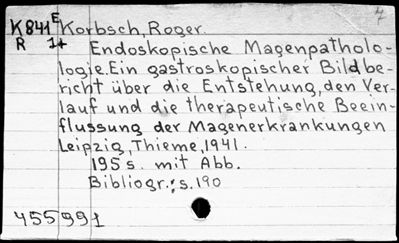 7
K841E Korbsch, Roger.
R 1+ Endoskopische Magenpatholo-
logie. Ein gastroskopischer Bildbe-
richt über die Entstehung, den Ver-
lauf und die therapeutische Beein-
flussung der Magenerkrankungen
Leipzig, Thieme, 1941.
195 s. mit Abb.
Bibliogr.: s. 190
455991